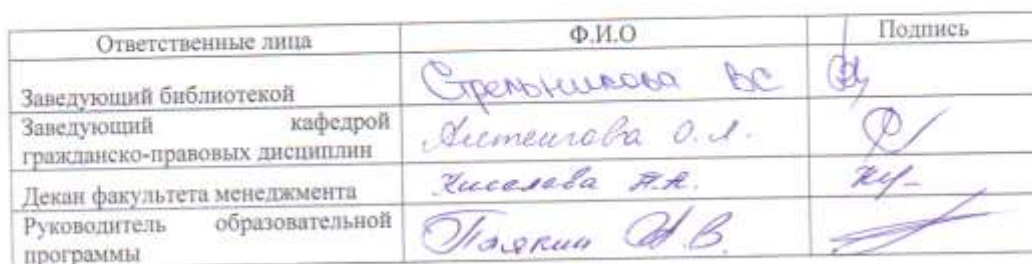 Ответственные лица Ф.И.О Подпись
Заведующий библиотекой Стрельникова ВС
Заведующий кафедрой
гражданско-правовых дисциплин О.Л.
Декан факультета менеджмента Киселева А.А.
Руководитель образовательной
программы В.